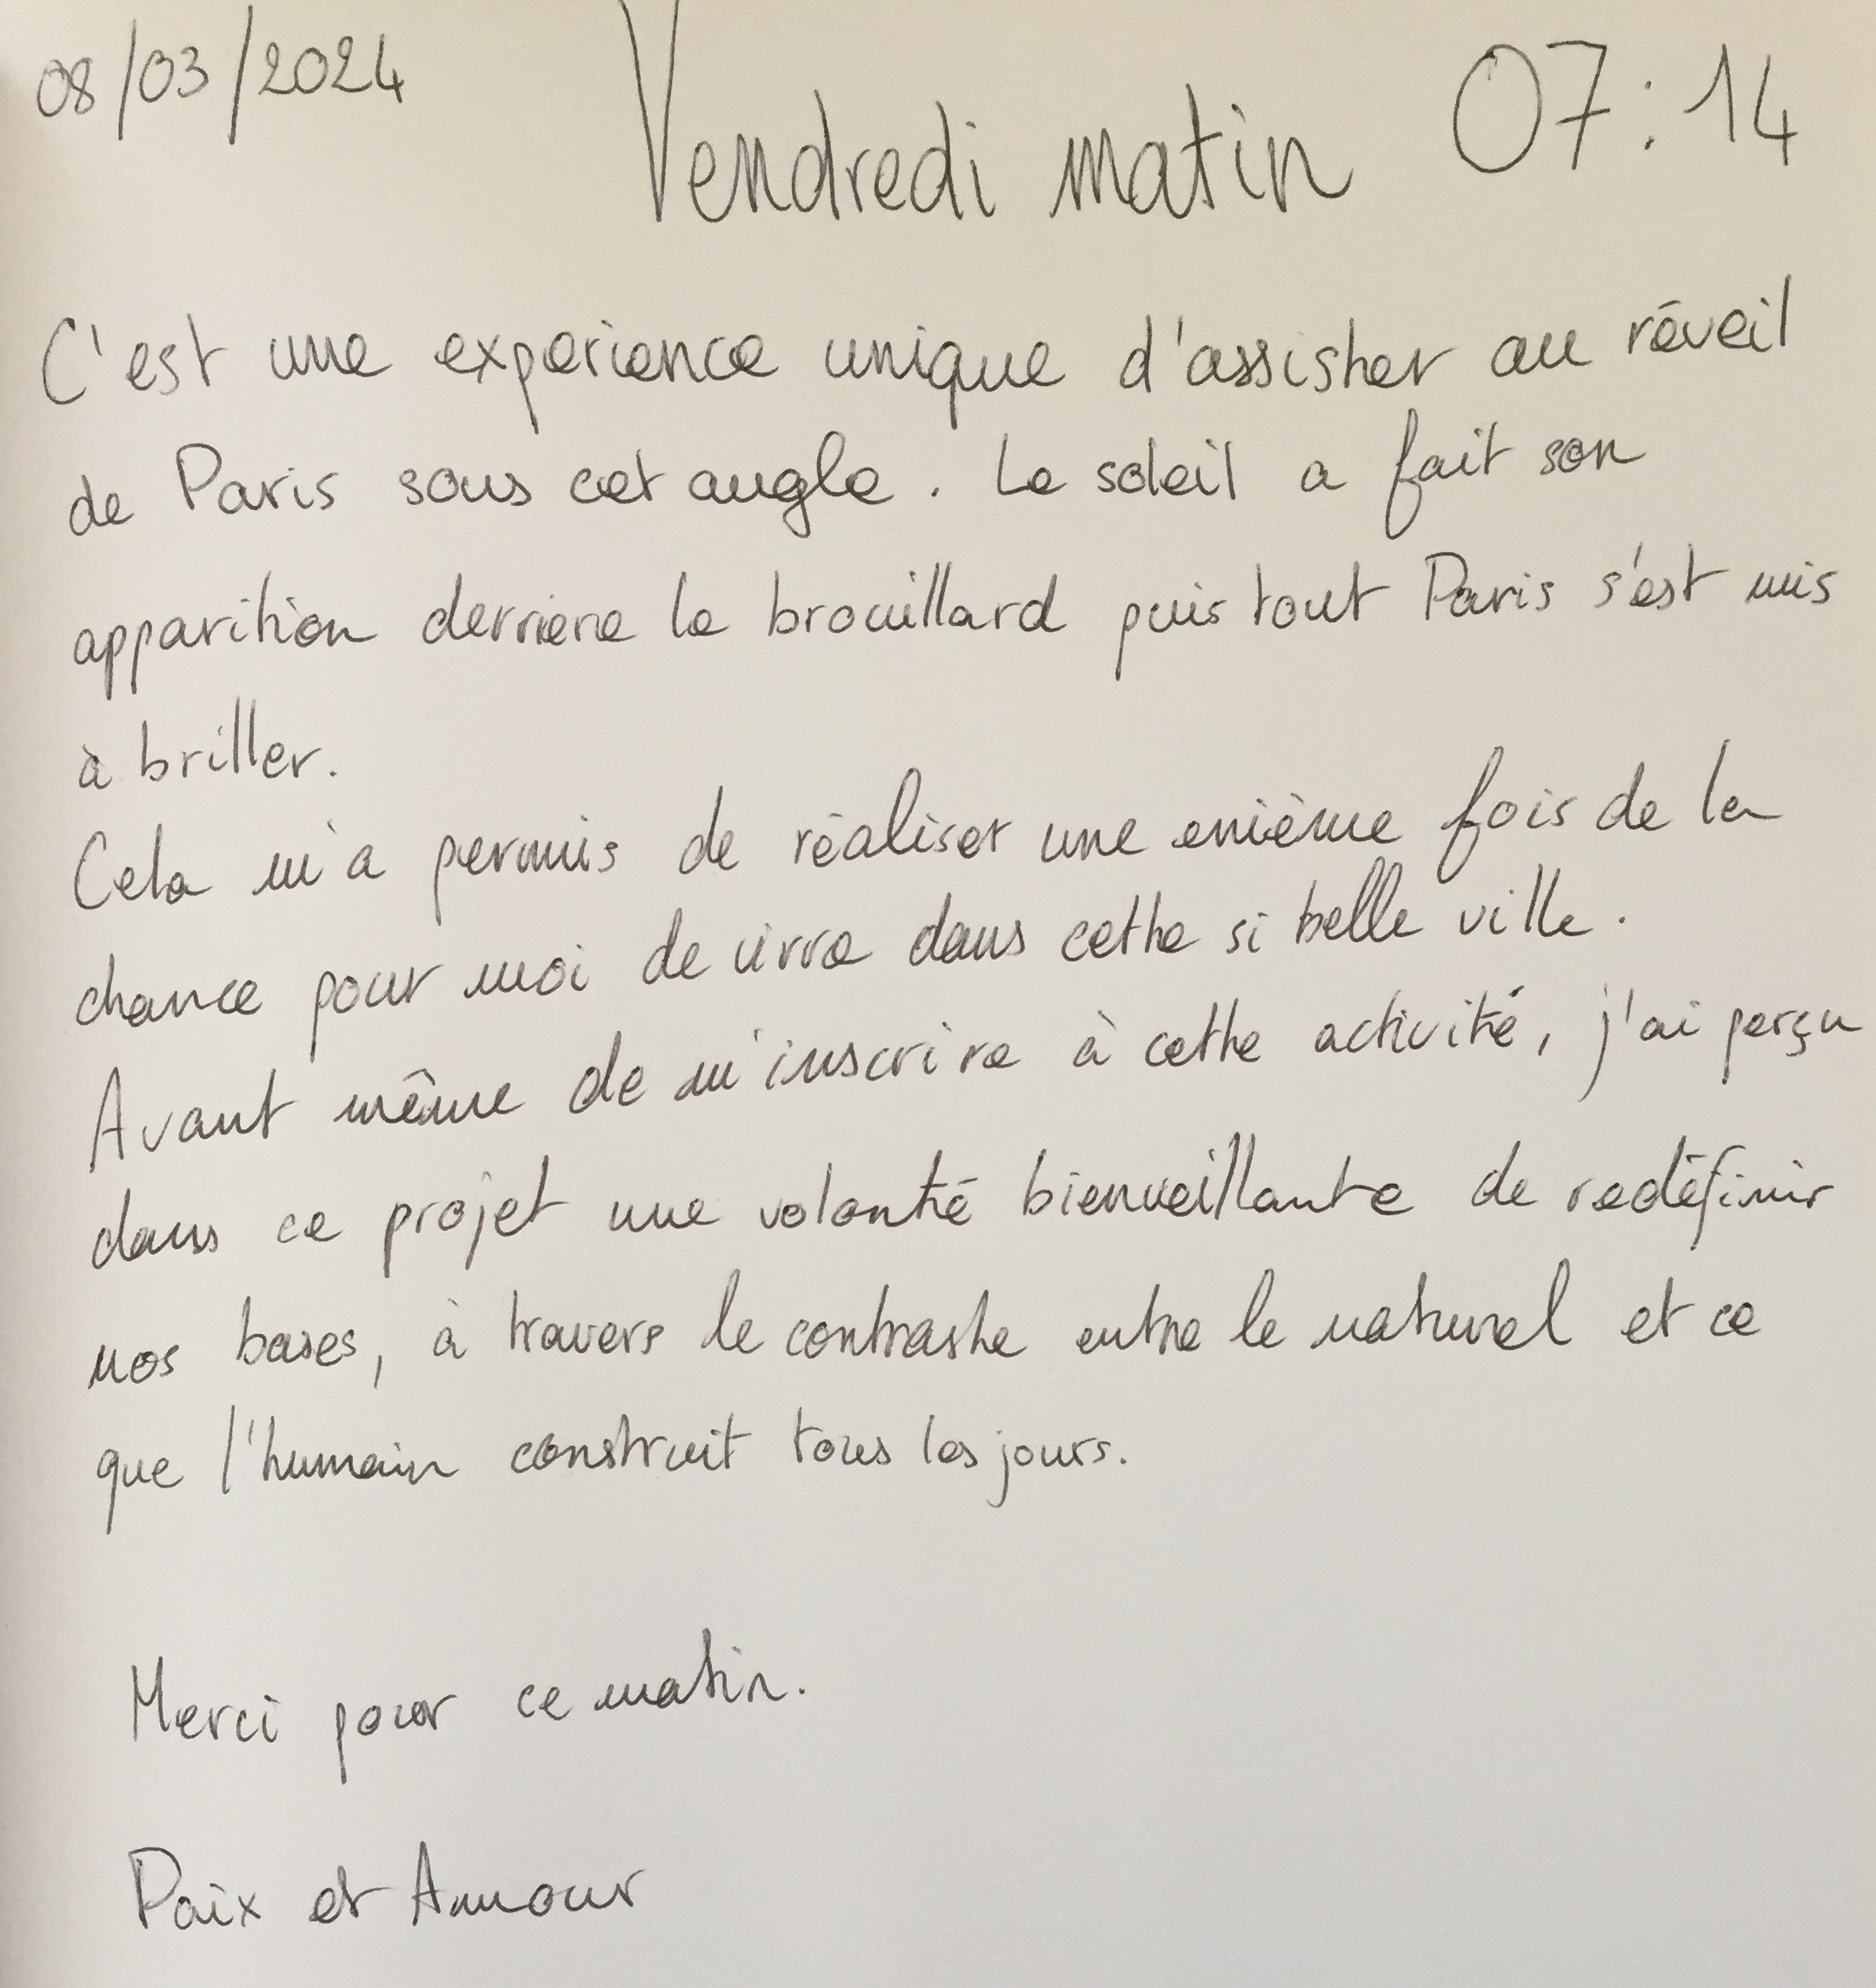 08/03/2024 Vendredi matin 07:14
C'est une expérience unique d'assister au réveil
de Paris sous cet angle. Le soleil a fait son
apparition derrière le brouillard puis tout Paris s'est mis
à briller.
Cela m'a permis de réaliser une enième fois de la
chance pour moi de vivre dans cette si belle ville.
Avant même de m'inscrire à cette activité, j'ai perçu
dans ce projet une volonté bienveillante de redéfinir
nos bases, à travers le contraste entre le naturel et ce
que l'humain construit tous les jours.
Merci pour ce matin.
Paix et Amour